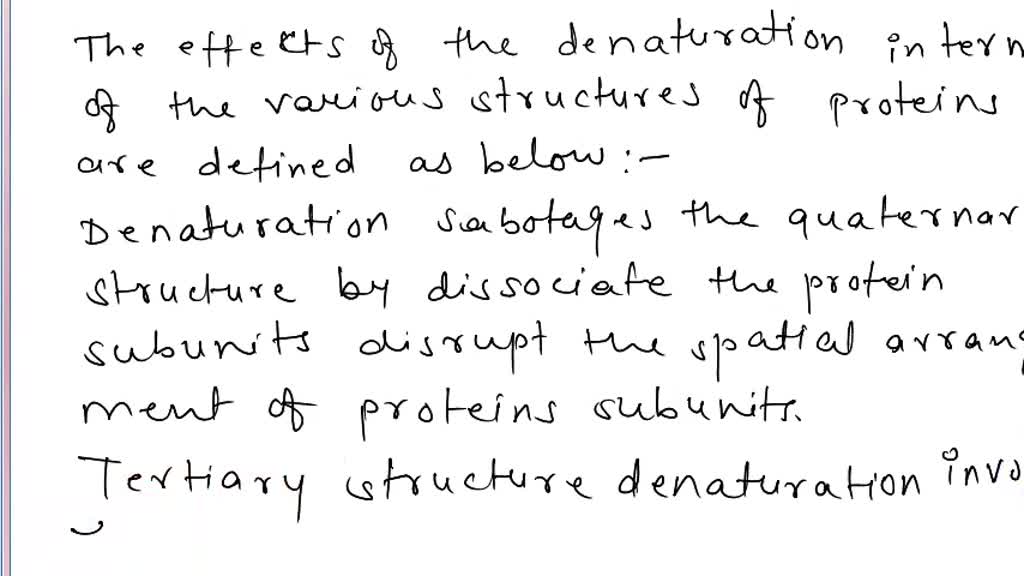 The effects of the denaturation in term
of the various structures of proteins
are defined as below :-
Denaturation sabotages the quaternar
structure by dissociate the protein
subunits disrupt the spatial arrang
ment of proteins subunits.
Tertiary structure denaturation invo